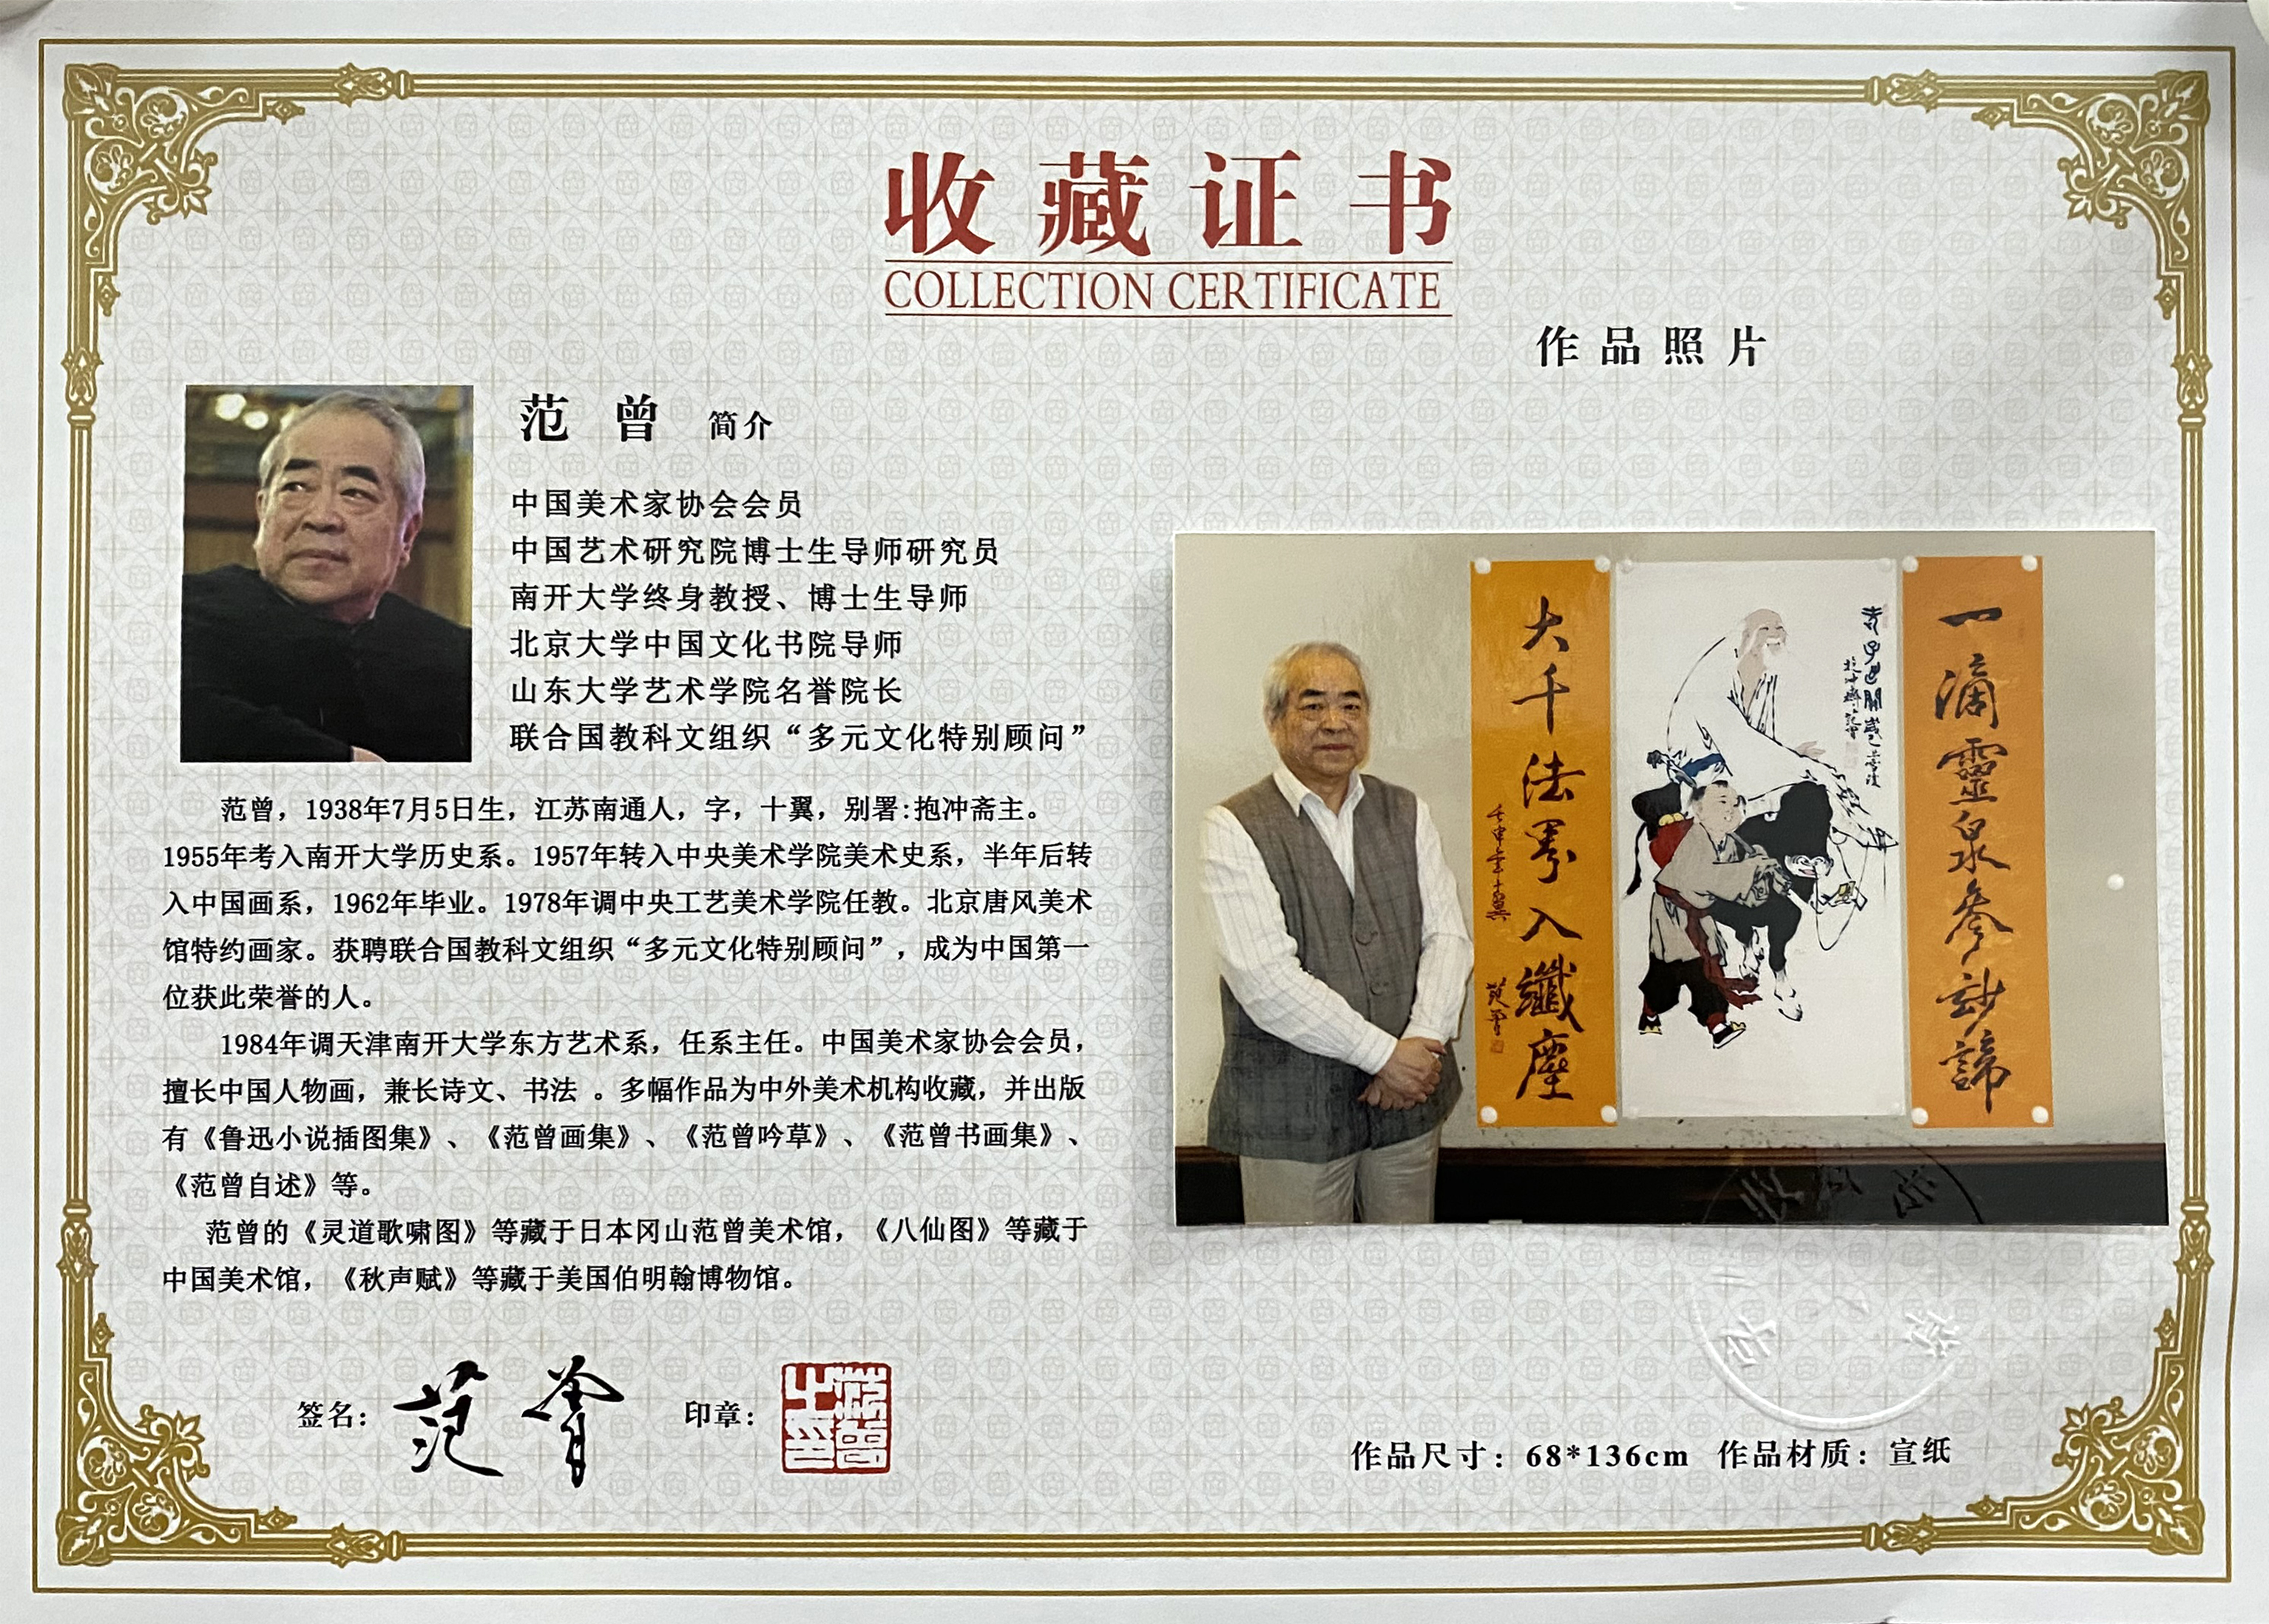 收藏证书
COLLECTION CERTIFICATE
作品照片
范曾 简介
中国美术家协会会员
中国艺术研究院博士生导师研究员
南开大学终身教授、博士生导师
北京大学中国文化书院导师
山东大学艺术学院名誉院长
联合国教科文组织“多元文化特别顾问”
范曾，1938年7月5日生，江苏南通人，字，十翼，别署:抱冲斋主。
1955年考入南开大学历史系。1957年转入中央美术学院美术史系，半年后转
入中国画系，1962年毕业。1978年调中央工艺美术学院任教。北京唐风美术
馆特约画家。获聘联合国教科文组织“多元文化特别顾问”，成为中国第一
位获此荣誉的人。
1984年调天津南开大学东方艺术系，任系主任。中国美术家协会会员，
擅长中国人物画，兼长诗文、书法 。多幅作品为中外美术机构收藏，并出版
有《鲁迅小说插图集》、《范曾画集》、《范曾吟草》、《范曾书画集》、
《范曾自述》等。
范曾的《灵道歌啸图》等藏于日本冈山范曾美术馆，《八仙图》等藏于
中国美术馆，《秋声赋》等藏于美国伯明翰博物馆。
签名：范曾
印章：范曾之印
一滴靈泉參妙諦
老子出關
大千法界入纖塵
壬申年十翼
范曾
作品尺寸：68*136cm 作品材质：宣纸